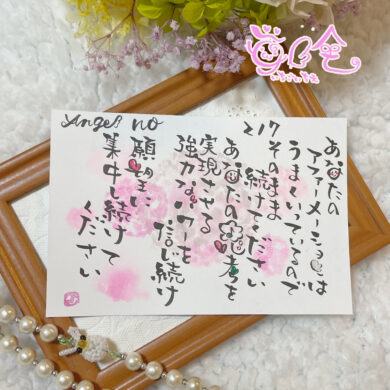 Angel no
217
あなたの
アファメーションは
うまくいっているので
そのまま
続けてください
あなたの思考を
実現させる
強力なパワーを
信じ続け
願望に
集中し続けて
ください